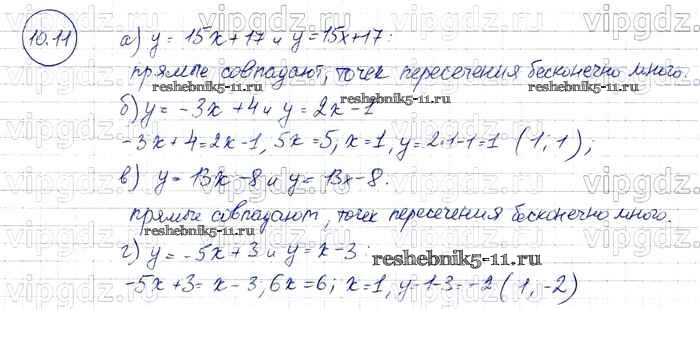 10.11
а) y = 15x+17 и y = 15x+17:
прямые совпадают, точек пересечения бесконечно много.
reshebnik5-11.ru reshebnik5-11.ru
б) y = -3x +4 и y = 2x -1
-3x+4=2x-1, 5x=5, x=1, y=2·1-1=1 (1; 1);
в) y = 13x -8 и y = 13x-8.
прямые совпадают, точек пересечения бесконечно много.
reshebnik5-11.ru
г) y = -5x+3 и y = x-3:
reshebnik5-11.ru
-5x+3= x-3; 6x=6; x=1, y=1-3=-2 (1, -2)
vipgdz.ru